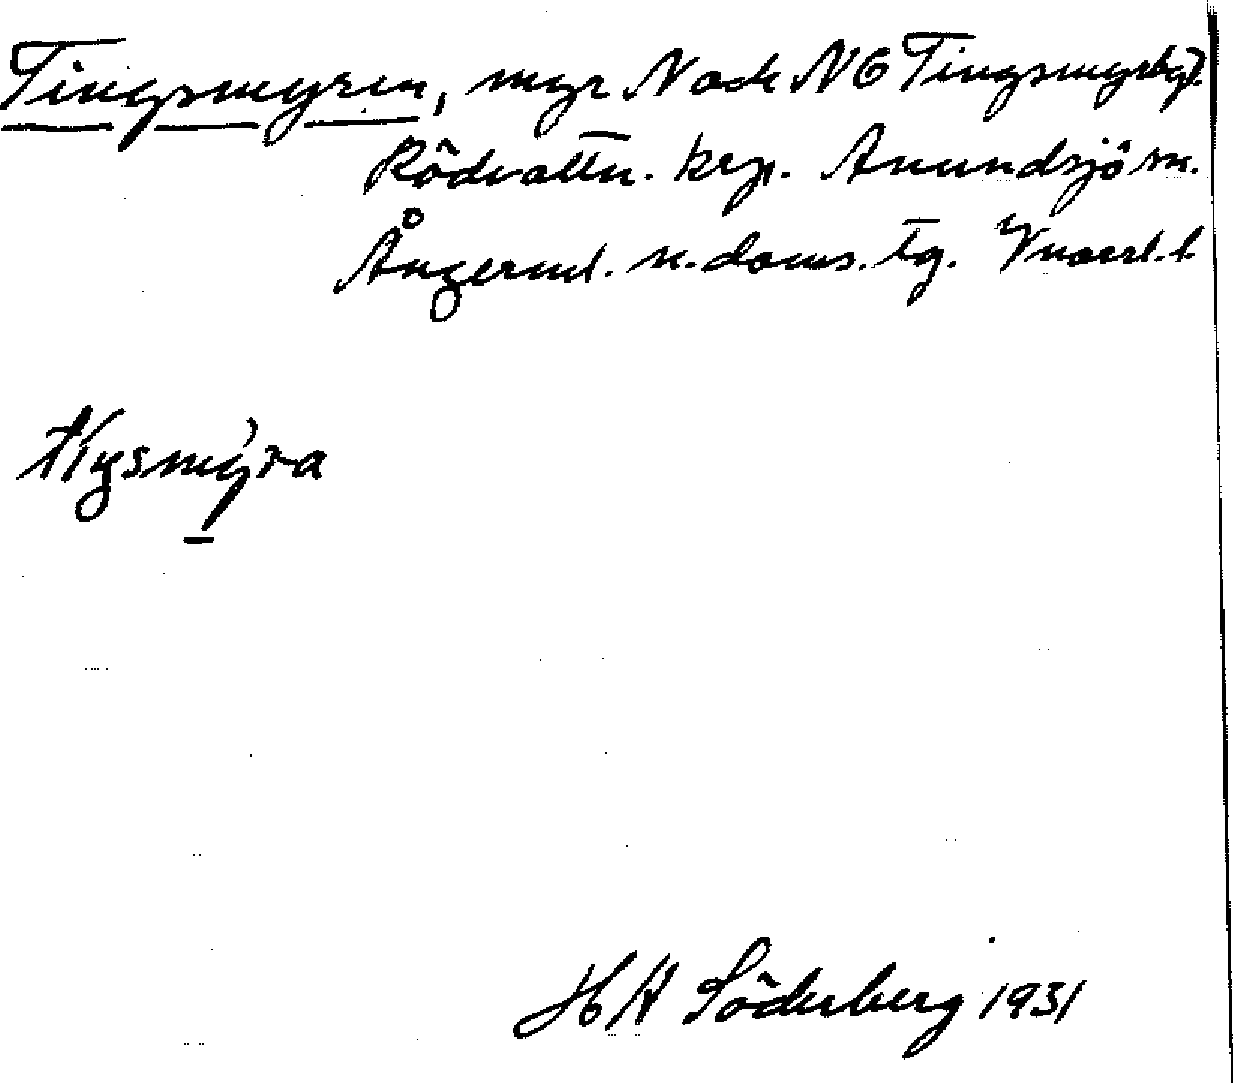 Tingsmyren, myr N och NO Tingsmyrbgt.
Rödvattn. krp. Anundsjö sn.
Ångerml. n. doms. tg. Vnorrl. l.
tI̯ysmy̆ra
H H Söderberg 1931